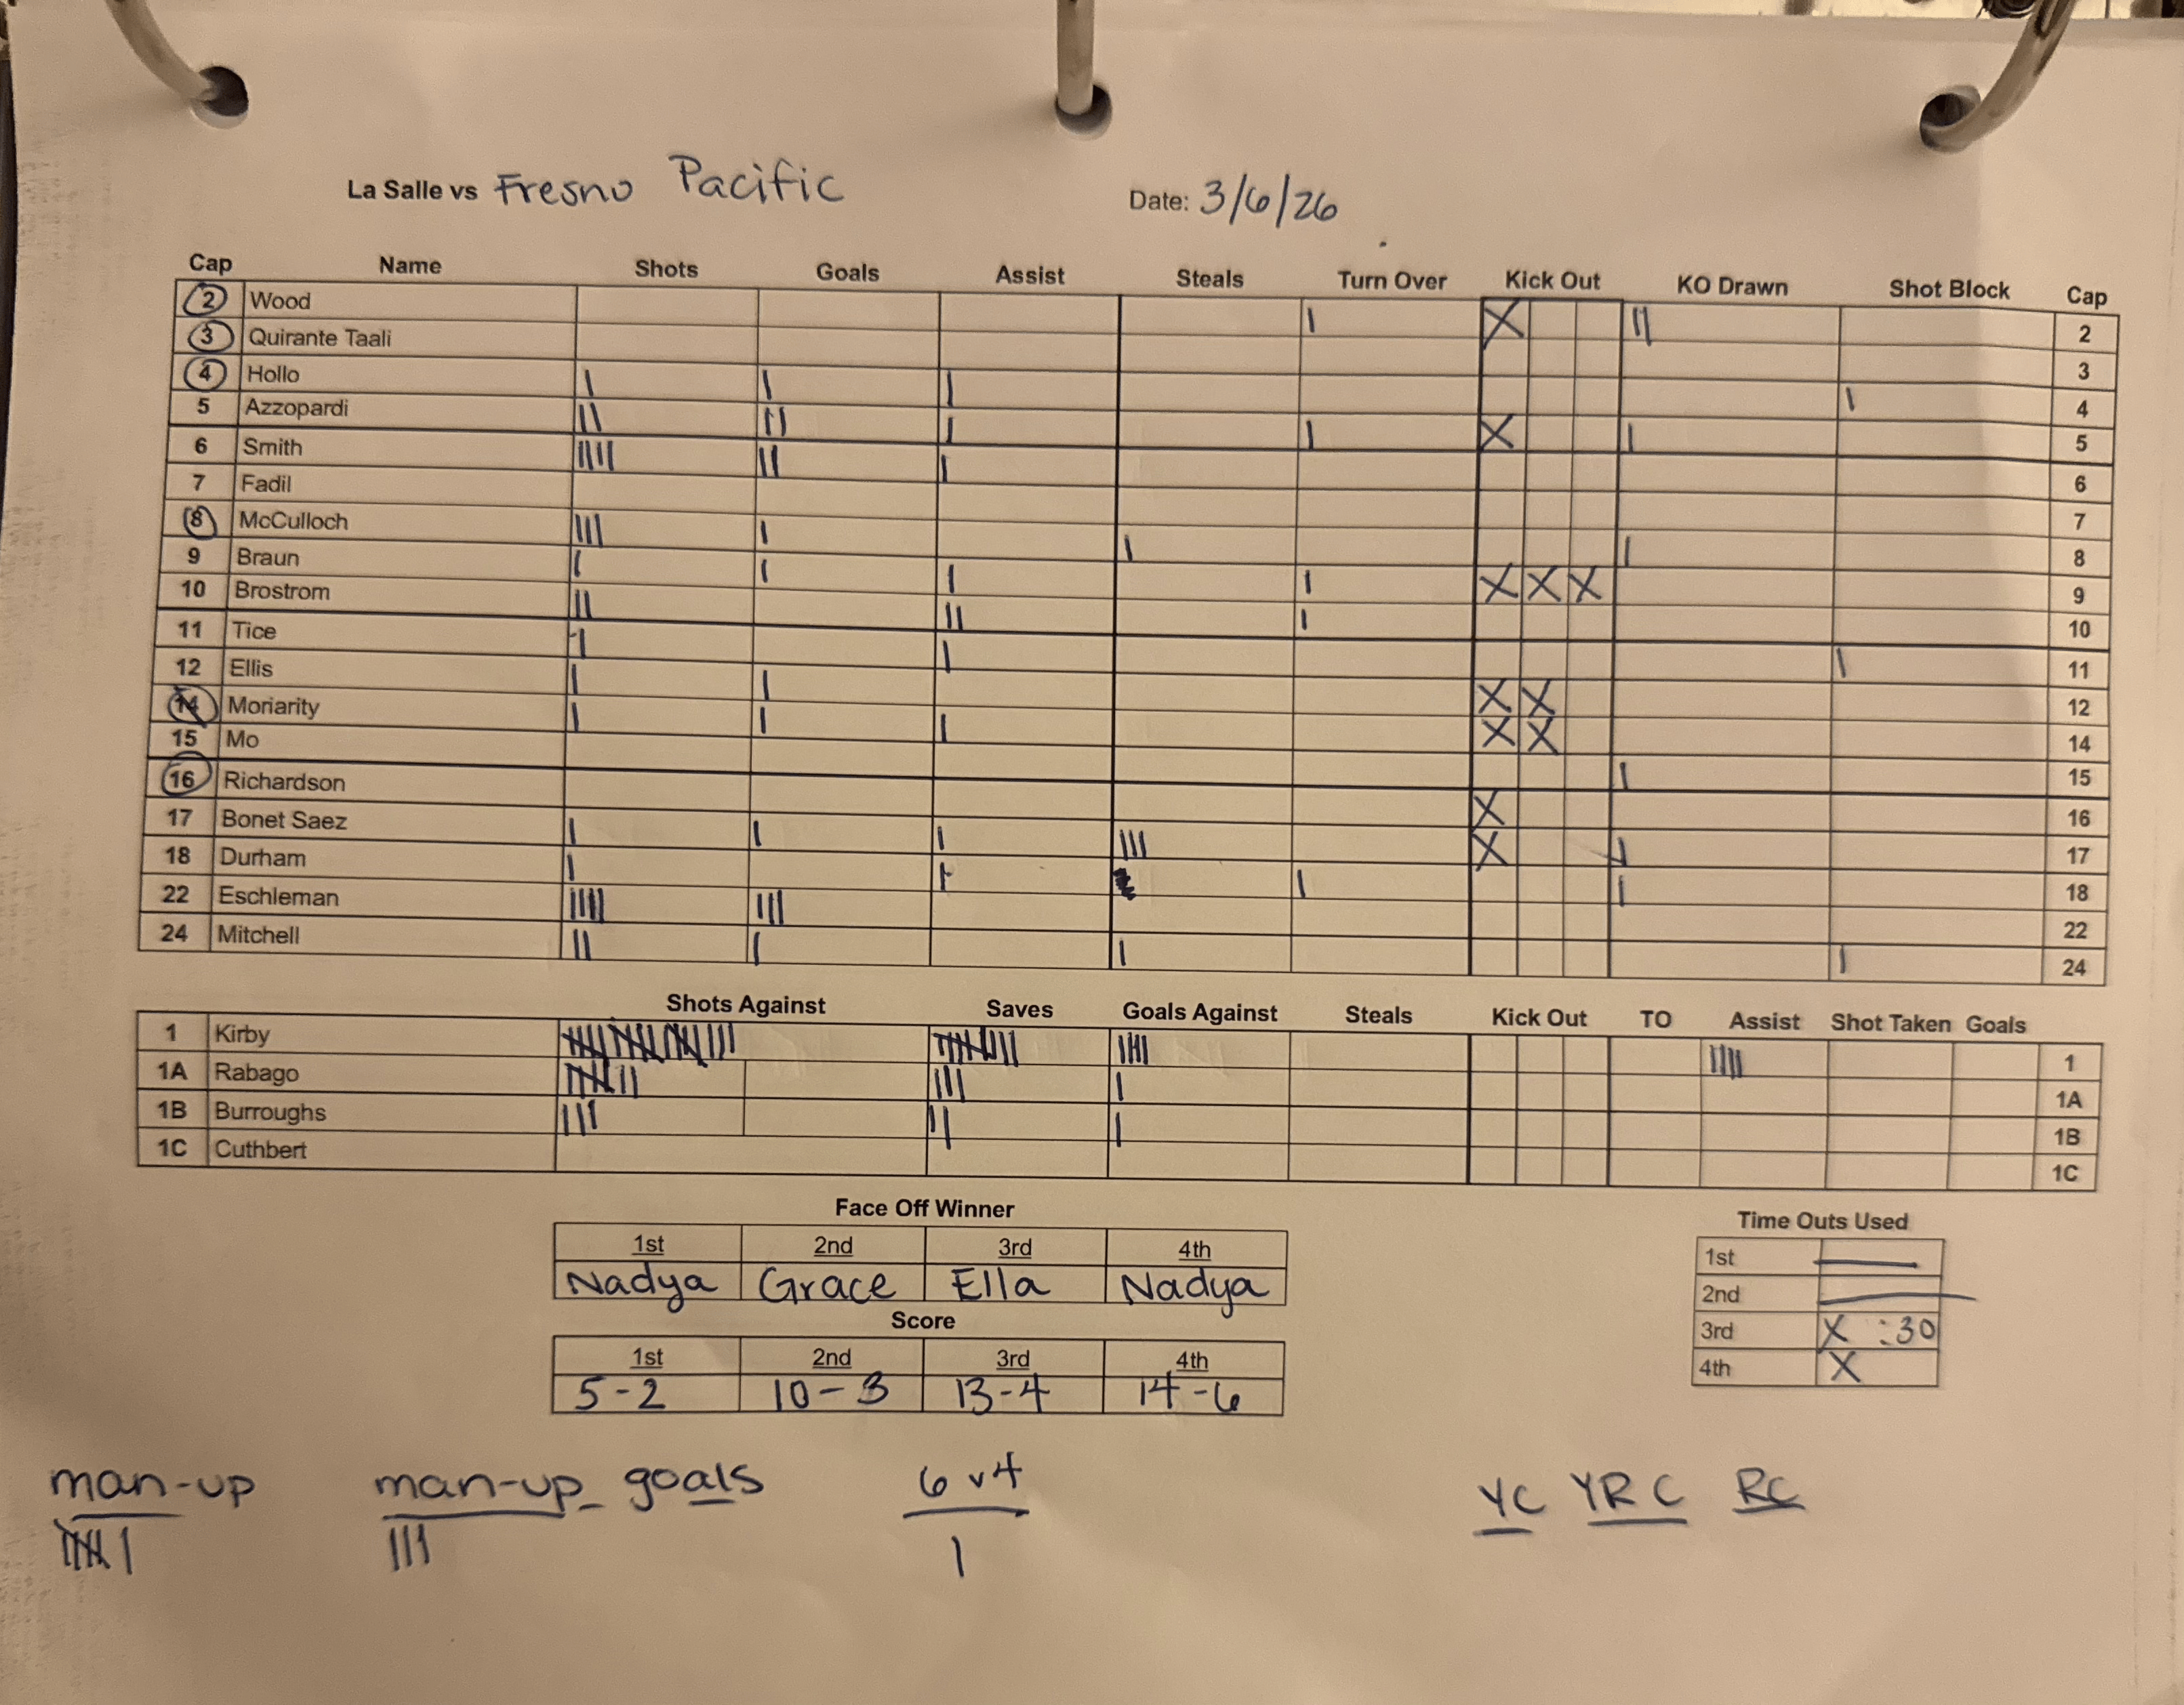 La Salle vs Fresno Pacific Date: 3/6/26
Cap Name Shots Goals Assist Steals Turn Over Kick Out KO Drawn Shot Block Cap
2 Wood | X || 2
3 Quirante Taali 3
4 Hollo | | | | 4
5 Azzopardi || || | | X | 5
6 Smith |||| || | 6
7 Fadil 7
8 McCulloch ||| | | | 8
9 Braun | | | | X X X 9
10 Brostrom || || | 10
11 Tice | | | 11
12 Ellis | | X X 12
14 Moriarity | | | X X 14
15 Mo | 15
16 Richardson X 16
17 Bonet Saez | | | ||| X | 17
18 Durham | | | | 18
22 Eschleman |||| ||| 22
24 Mitchell || | | | 24
Shots Against Saves Goals Against Steals Kick Out TO Assist Shot Taken Goals
1 Kirby |||| |||| 1
1A Rabago ||| | 1A
1B Burroughs ||| || | 1B
1C Cuthbert 1C
Face Off Winner
1st 2nd 3rd 4th
Nadya Grace Ella Nadya
Score
1st 2nd 3rd 4th
5-2 10-3 13-4 14-6
Time Outs Used
1st —
2nd —
3rd X :30
4th X
man-up man-up goals 6v4 YC YRC RC
|||| | ||| |